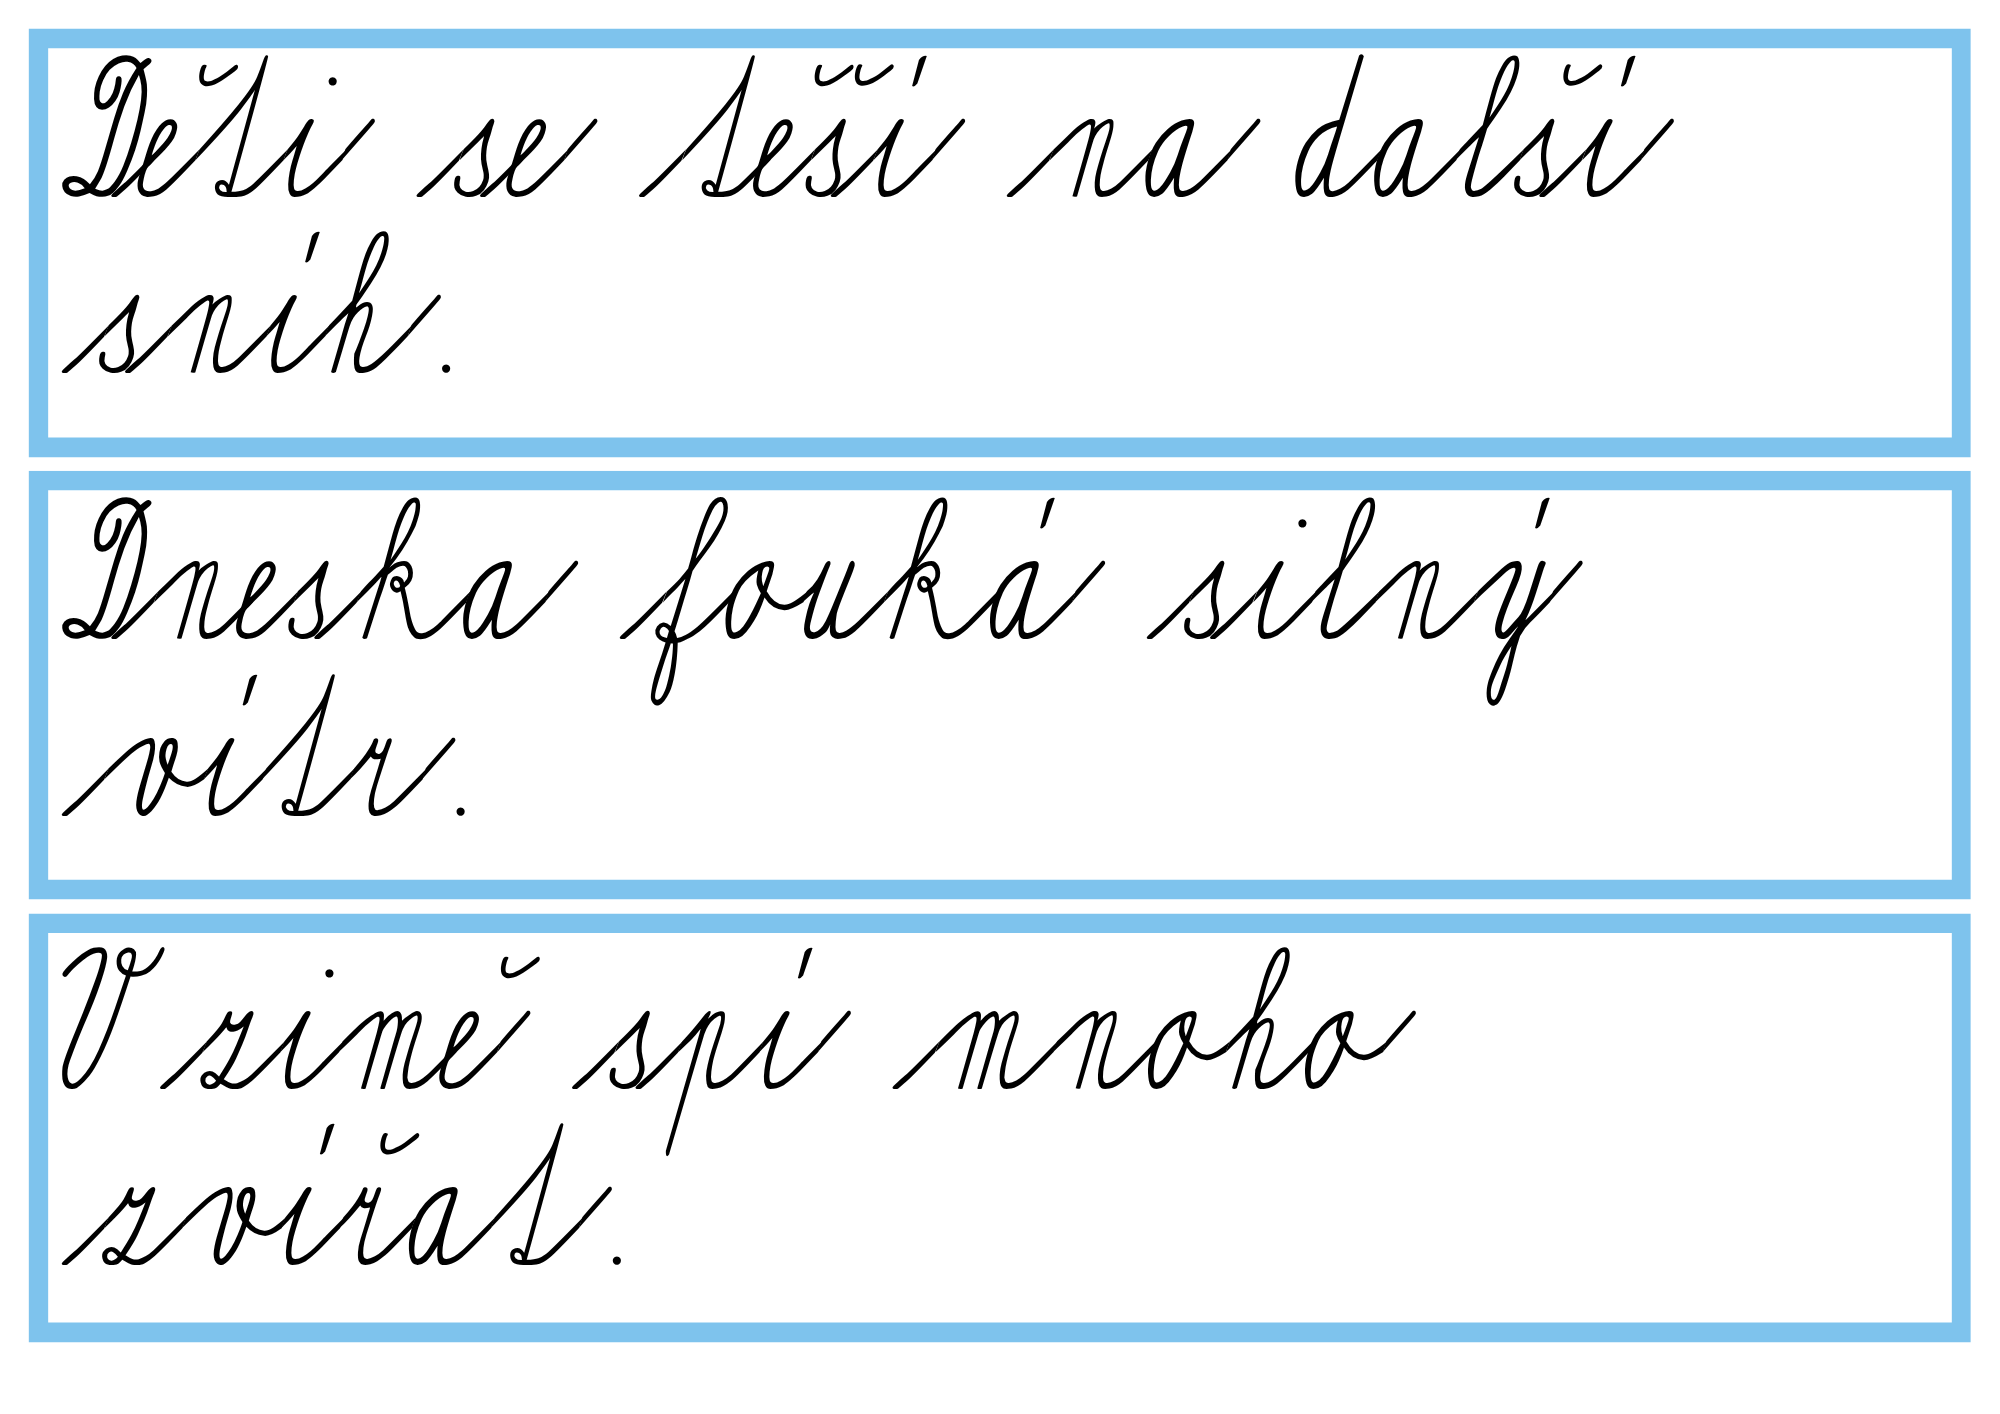 Děti se těší na další
sníh.
Dneska fouká silný
vítr.
V zimě spí mnoho
zvířat.